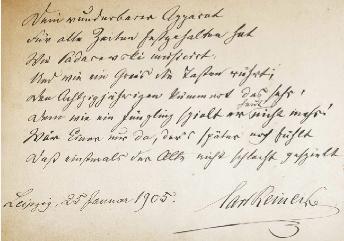 Dein wunderbarer Apparat
Für alle Zeiten festgehalten hat
Wie Paderewski musicirt.
Und wie ein Greis die Tasten rührt;
Den Achtzigjährigen kümmert das sehr,
Denn wie ein Jüngling spielt er heut nicht mehr!
Wär Einer nur da, der's später noch fühlt
Daß einstmals der Alte nicht schlecht gespielt
Leipzig, 25 Januar 1905.
Carl Reinecke